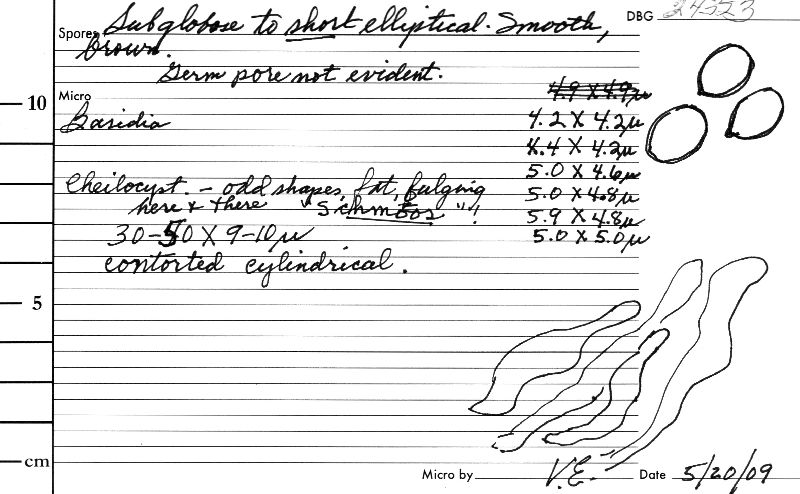 DBG 24523
Spores Subglobose to short elliptical. Smooth,
brown.
Germ pore not evident.
10
Micro
4.9 X 4.9µ
Basidia
4.2 X 4.2µ
4.4 X 4.2µ
5.0 X 4.6µ
Cheilocyst. - odd shapes, fat, fulging
5.0 X 4.8µ
here & there "Schmoos"!
5.9 X 4.8µ
30-50 X 9-10µ
5.0 X 5.0µ
contorted cylindrical.
5
cm
Micro by V.E. Date 5/20/09